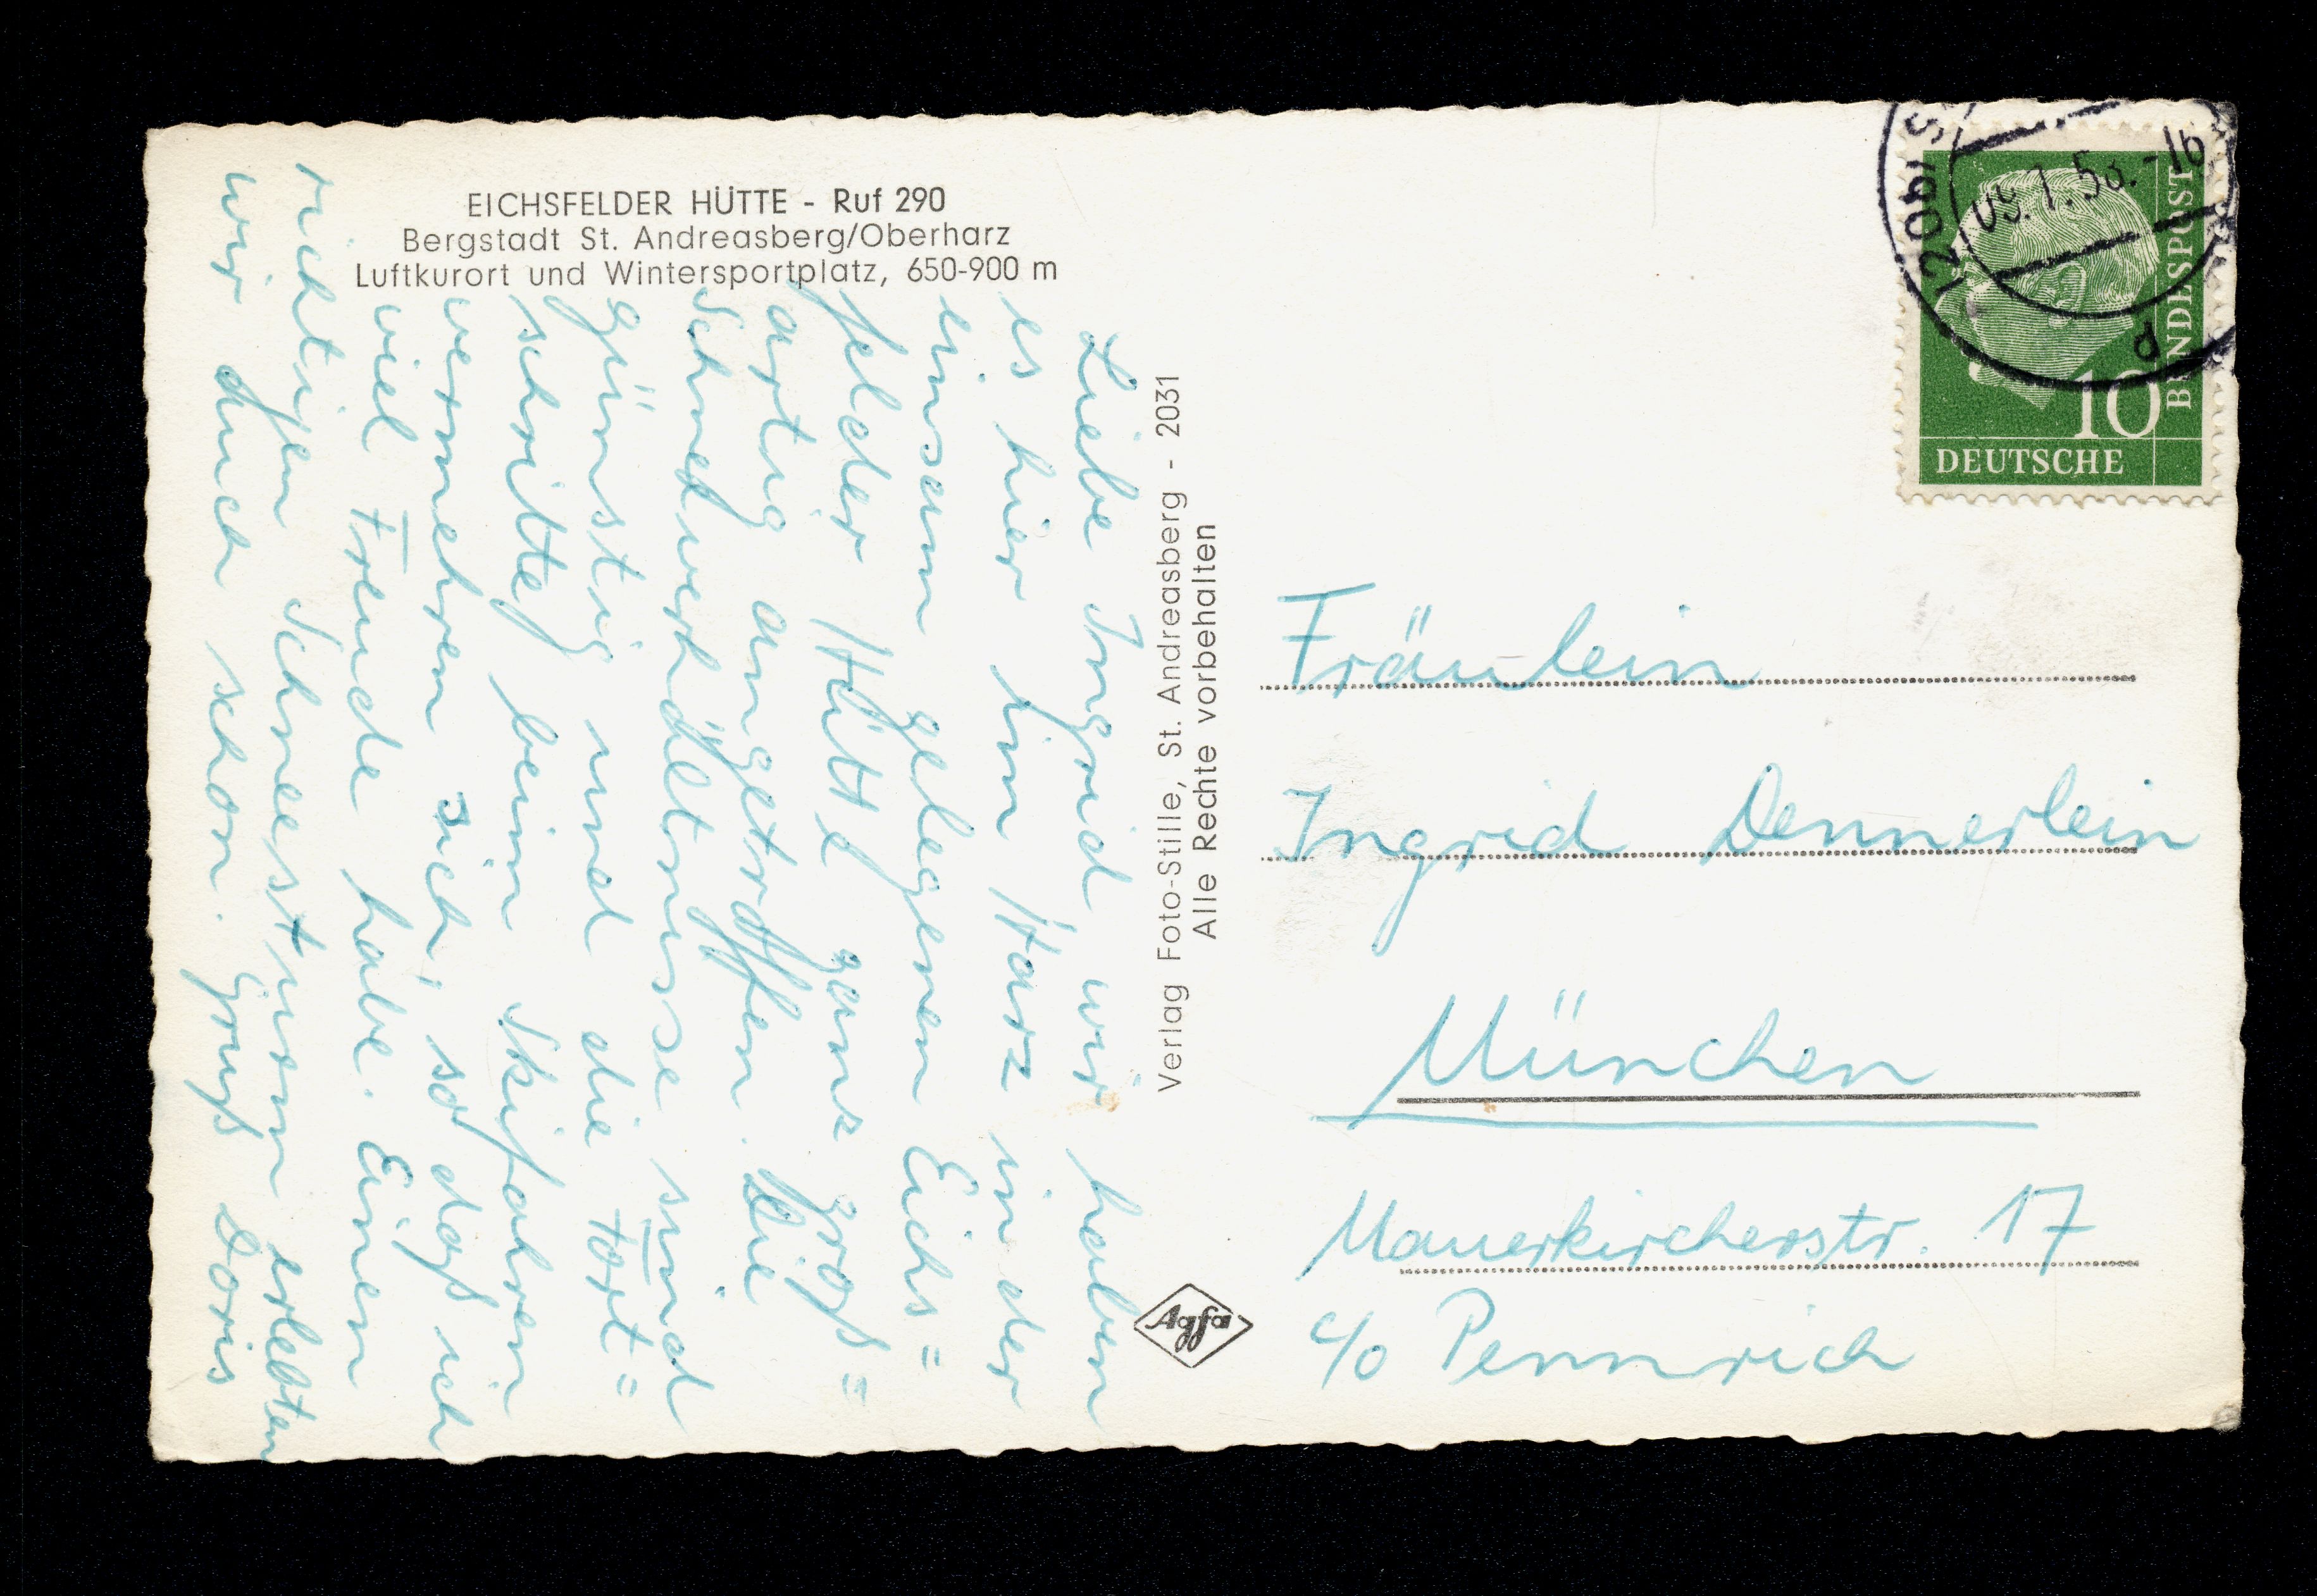 EICHSFELDER HÜTTE - Ruf 290
Bergstadt St. Andreasberg/Oberharz
Luftkurort und Wintersportplatz, 650-900 m
Liebe Ingrid wir haben
es hier im Harz in der
einsam gelegenen Eichs=
felder Hütte ganz groß=
artig angetroffen. Die
Schneeverhältnisse sind
günstig und die Fort=
schritte beim Skifahren
vermehren sich, so daß ich
viel Freude habe. Einen
richtigen Schneesturm erlebten
wir auch schon. Gruß Doris
Verlag Foto-Stille, St. Andreasberg - 2031
Alle Rechte vorbehalten
Agfa
09.1.58.-16
d
10
BUNDESPOST
DEUTSCHE
Fräulein
Ingrid Dennerlein
München
Mauerkircherstr. 17
c/o Pennrich